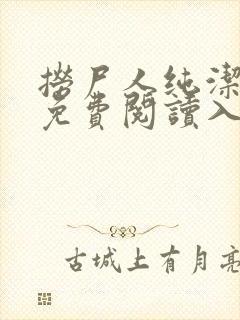 撈尸人純潔
免費閱讀入
古城上有月亮